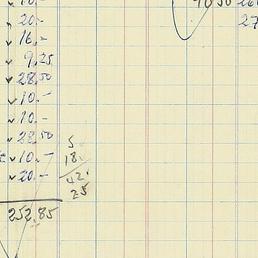 10.-
20.-
16.-
9,25
28,50
10.-
10.-
28,50
10.-
20.-
252,85
5
18.
42.
25